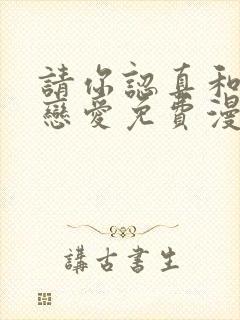 請你認真和
戀愛免費漫
講古書生